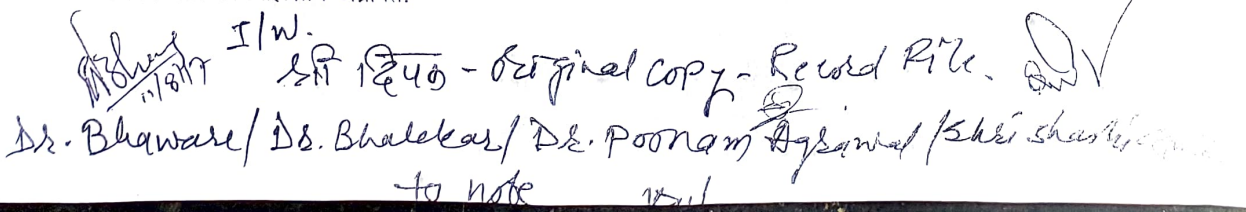 I/W.
11/8/17 श्री दिपक - Original copy - Record File.
Dr. Bhaware/ Dr. Bhalekar/ Dr. Poonam Agrawal /Shri
to note